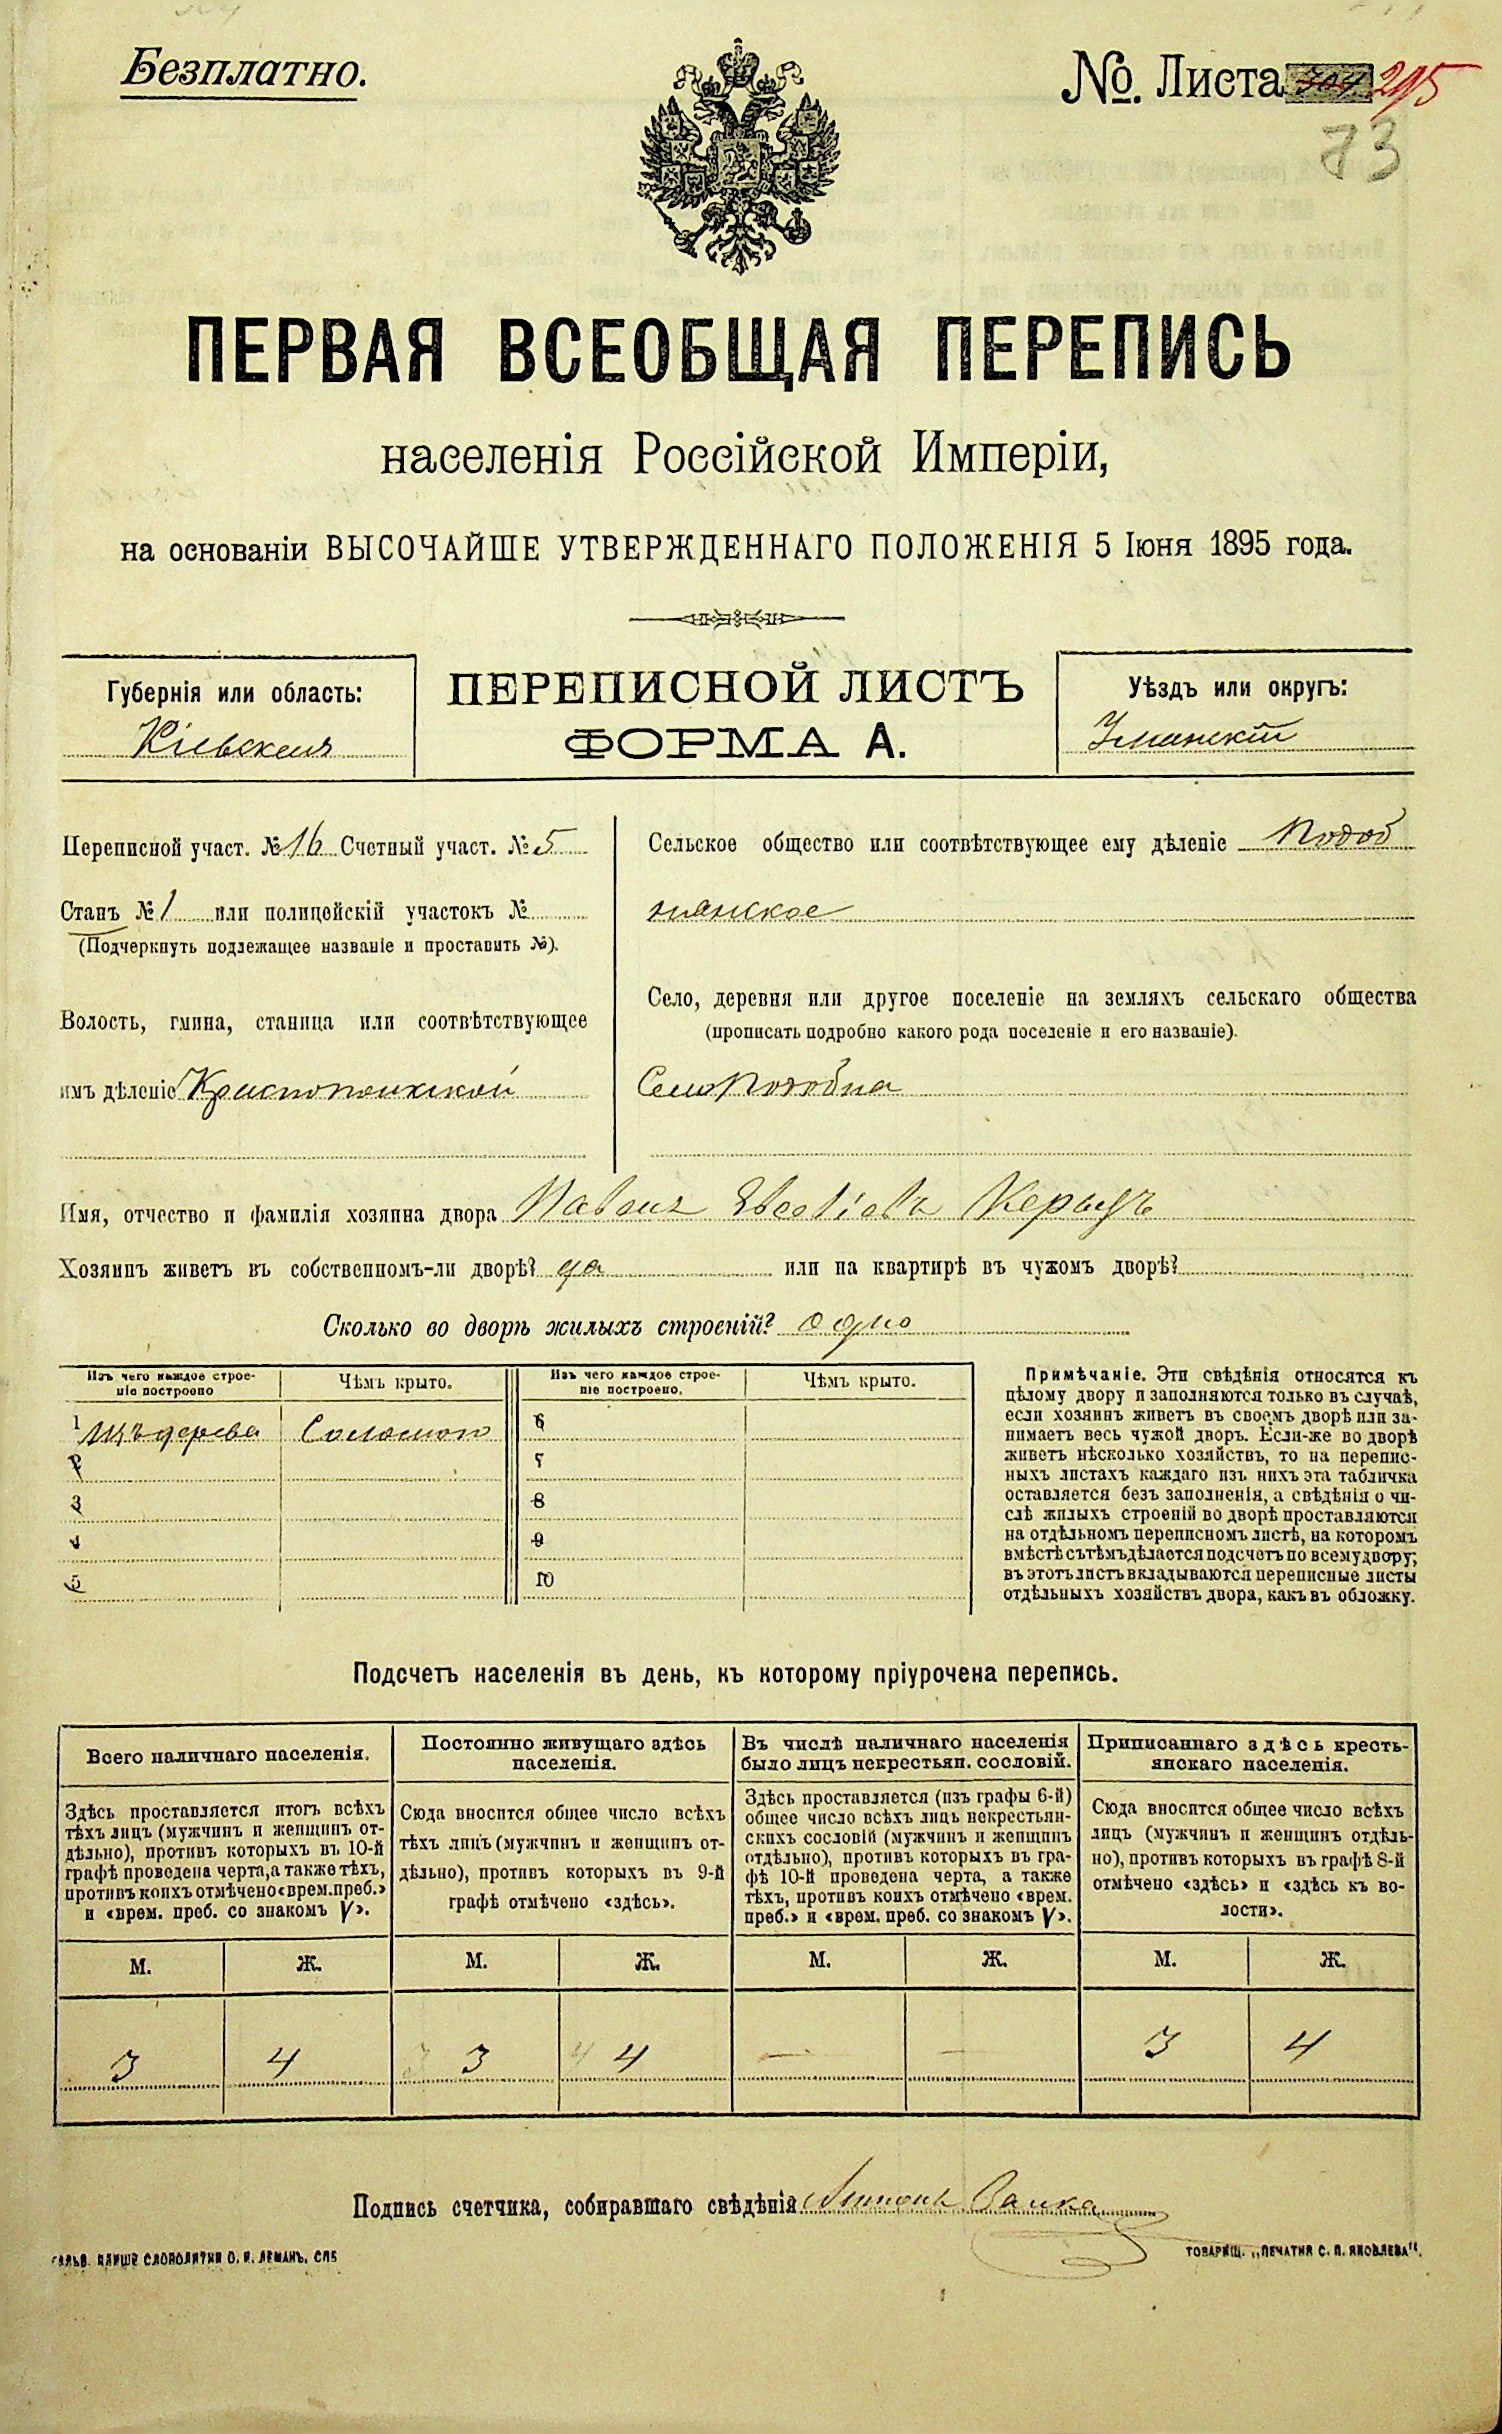 Безплатно.
№. Листа 295
73
ПЕРВАЯ ВСЕОБЩАЯ ПЕРЕПИСЬ
населенія Россійской Имперіи,
на основаніи ВЫСОЧАЙШЕ УТВЕРЖДЕННАГО ПОЛОЖЕНІЯ 5 Іюня 1895 года.
Губернія или область:
Кіевская
ПЕРЕПИСНОЙ ЛИСТЪ
ФОРМА А.
Уѣздъ или округъ:
Уманскій
Переписной участ. № 16 Счетный участ. № 5
Станъ № 1 или полицейскій участокъ №
(Подчеркнуть подлежащее названіе и проставить №).
Волость, гмина, станица или соотвѣтствующее
имъ дѣленіе
Сельское общество или соотвѣтствующее ему дѣленіе Подоб
нянское
Село, деревня или другое поселеніе на земляхъ сельскаго общества
(прописать подробно какого рода поселеніе и его названіе).
Село Подобна
Имя, отчество и фамилія хозяина двора
Хозяинъ живетъ въ собственномъ-ли дворѣ? да или на квартирѣ въ чужомъ дворѣ?
Сколько во дворѣ жилыхъ строеній? одно
Изъ чего каждое строе-
ніе построено
Чѣмъ крыто.
Изъ чего каждое строе-
ніе построено.
Чѣмъ крыто.
1 Изъ дерева Соломою 6
2 7
3 8
4 9
5 10
Примѣчаніе. Эти свѣдѣнія относятся къ
цѣлому двору и заполняются только въ случаѣ,
если хозяинъ живетъ въ своемъ дворѣ или за-
нимаетъ весь чужой дворъ. Если-же во дворѣ
живетъ нѣсколько хозяйствъ, то на перепис-
ныхъ листахъ каждаго изъ нихъ эта табличка
оставляется безъ заполненія, а свѣдѣнія о чи-
слѣ жилыхъ строеній во дворѣ проставляются
на отдѣльномъ переписномъ листѣ, на которомъ
вмѣстѣ съ тѣмъ дѣлается подсчетъ по всему двору;
въ этотъ листъ вкладываются переписные листы
отдѣльныхъ хозяйствъ двора, какъ въ обложку.
Подсчетъ населенія въ день, къ которому пріурочена перепись.
Всего наличнаго населенія.
Здѣсь проставляется итогъ всѣхъ
тѣхъ лицъ (мужчинъ и женщинъ от-
дѣльно), противъ которыхъ въ 10-й
графѣ проведена черта, а также тѣхъ,
противъ коихъ отмѣчено «врем. преб.»
и «врем. преб. со знакомъ V».
Постоянно живущаго здѣсь
населенія.
Сюда вносится общее число всѣхъ
тѣхъ лицъ (мужчинъ и женщинъ от-
дѣльно), противъ которыхъ въ 9-й
графѣ отмѣчено «здѣсь».
Въ числѣ наличнаго населенія
было лицъ некрестьян. сословій.
Здѣсь проставляется (изъ графы 6-й)
общее число всѣхъ лицъ некрестьян-
скихъ сословій (мужчинъ и женщинъ
отдѣльно), противъ которыхъ въ гра-
фѣ 10-й проведена черта, а также
тѣхъ, противъ коихъ отмѣчено «врем.
преб.» и «врем. преб. со знакомъ V».
Приписаннаго здѣсь кресть-
янскаго населенія.
Сюда вносится общее число всѣхъ
лицъ (мужчинъ и женщинъ отдѣль-
но), противъ которыхъ въ графѣ 8-й
отмѣчено «здѣсь» и «здѣсь къ во-
лости».
М. Ж. М. Ж. М. Ж. М. Ж.
3 4 3 3 4 4 — — 3 4
Подпись счетчика, собиравшаго свѣдѣнія
ГАЛЬВ. КЛИШЕ СЛОВОЛИТНИ О. И. ЛЕМАНЪ, СПБ
ТОВАРИЩ. „ПЕЧАТНЯ С. П. ЯКОВЛЕВА".